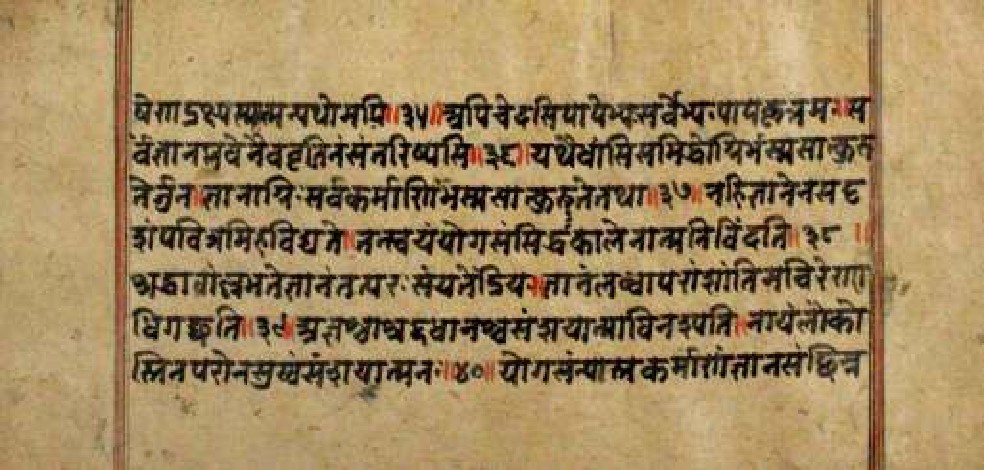 षेणद्रक्ष्यस्यात्मन्यथोमयि ॥३५॥ अपिचेदसिपापेभ्यःसर्वेभ्यःपापकृत्तमः॥स
र्वंज्ञानप्लवेनैववृजिनंसंतरिष्यसि॥३६॥ यथैधांसिसमिद्धोग्निर्भस्मसात्कुरुते
र्जुन॥ज्ञानाग्निःसर्वकर्माणिभस्मसात्कुरुतेतथा॥३७॥ नहिज्ञानेनसदृ
शंपवित्रमिहविद्यते॥तत्स्वयंयोगसंसिद्धःकालेनात्मनिविंदति॥३८॥
श्रद्धावांल्लभतेज्ञानंतत्परःसंयतेंद्रियः॥ज्ञानंलब्ध्वापरांशांतिमचिरेणा
धिगच्छति॥३९॥ अज्ञश्चाश्रद्दधानश्चसंशयात्माविनश्यति॥नायंलोको
स्तिनपरोनसुखंसंशयात्मनः॥४०॥ योगसंन्यस्तकर्माणंज्ञानसंछिन्न